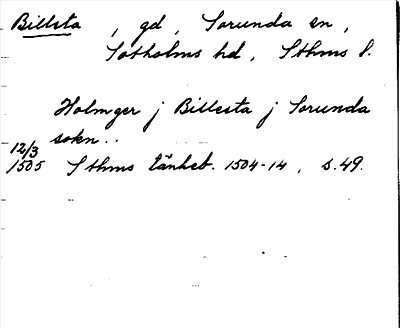 Billsta, gd, Sorunda sn,
Sotholms hd, Sthms l.
Holmger j Billesta j Sorunda
sokn..
12/3
1505 Sthms tänkeb. 1504-14, s. 49.